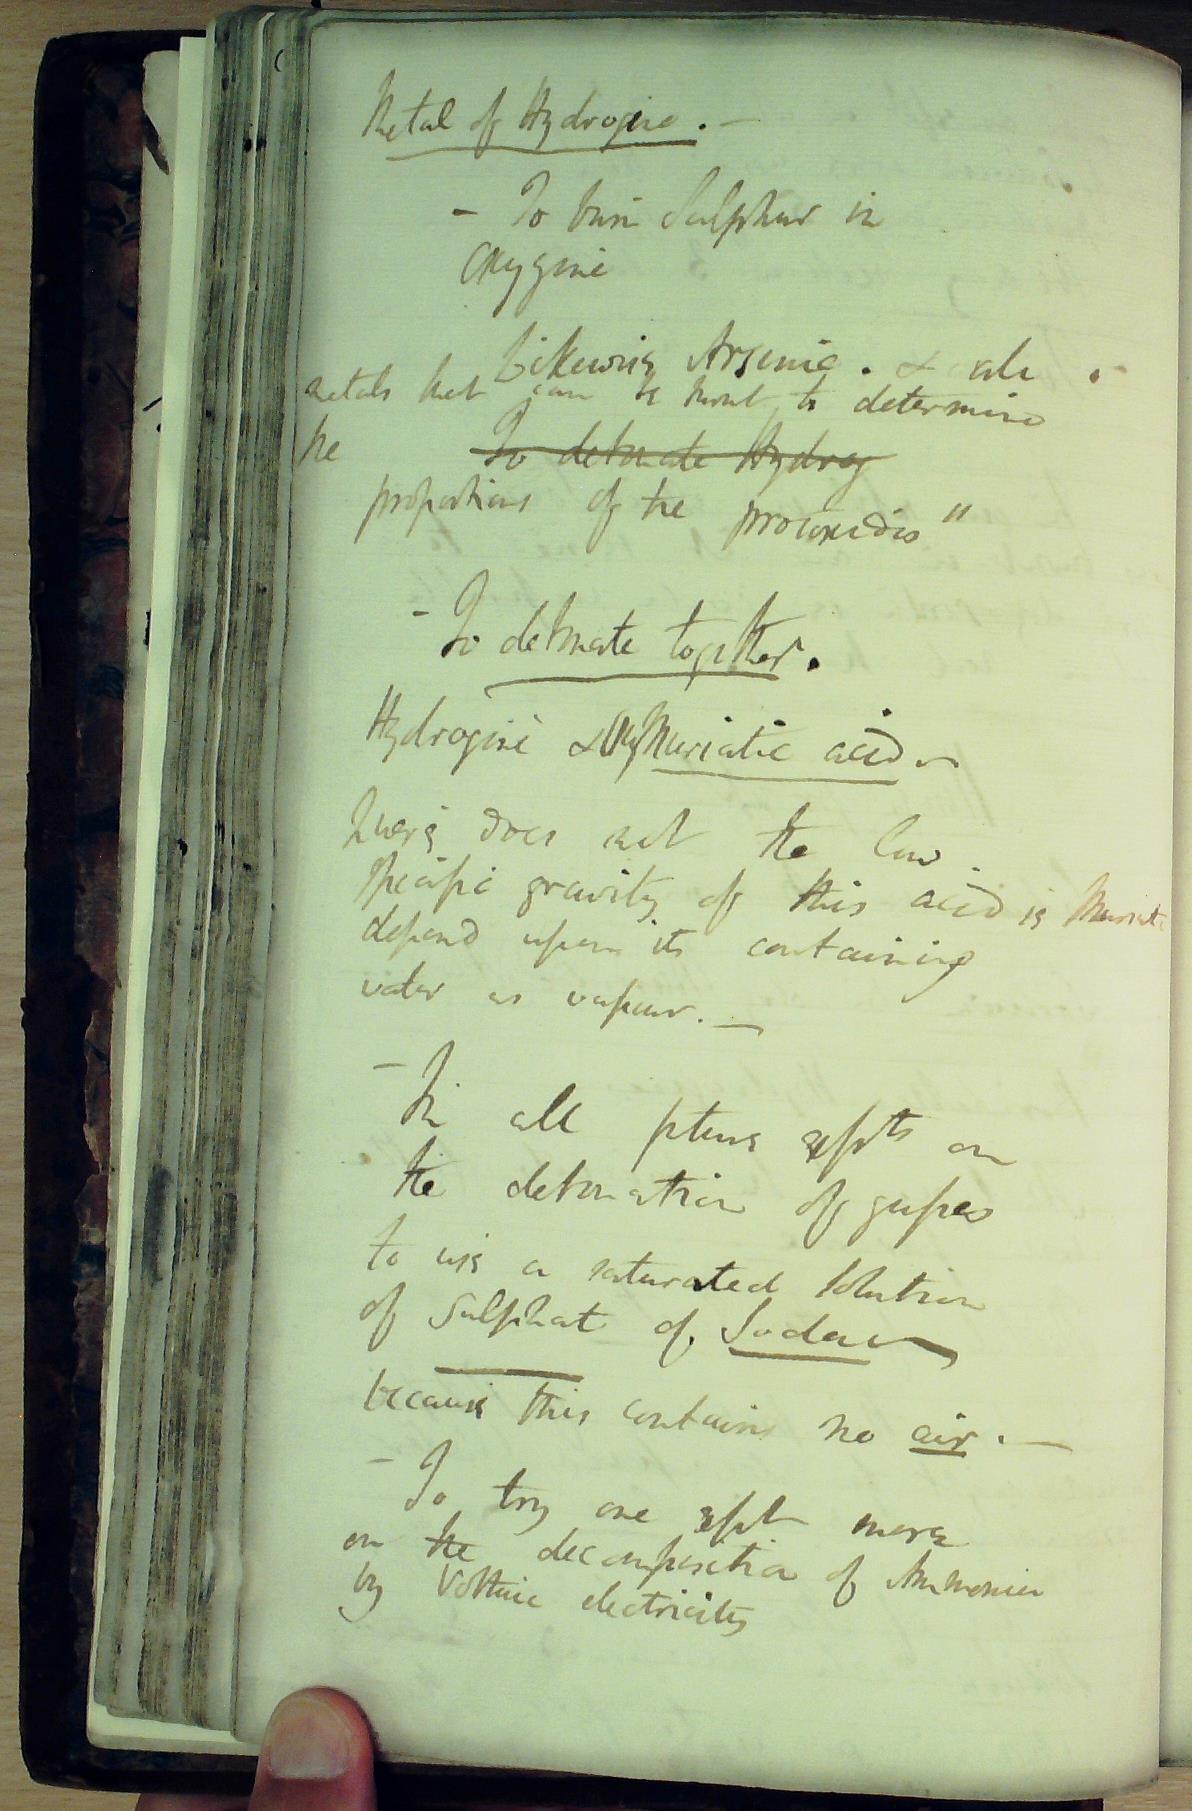 Metal of Hydrogene. —
- To burn Sulphur in
Oxygene
Likewise Arsenic. & all
metals that can be burnt to determine
the
To detonate Hydrog
proportions of the protoxides "
- To detonate together.
Hydrogene & Oxymuriatic acid
Quere does not the low
specific gravity of this acid ie Muriatic
depend upon its containing
water as vapour. —
- In all future expts on
the detonation of gases
to use a saturated solution
of Sulphat of Soda
because this contains no air. —
- To try one expt more
on the decomposition of Ammonia
by Voltaic electricity